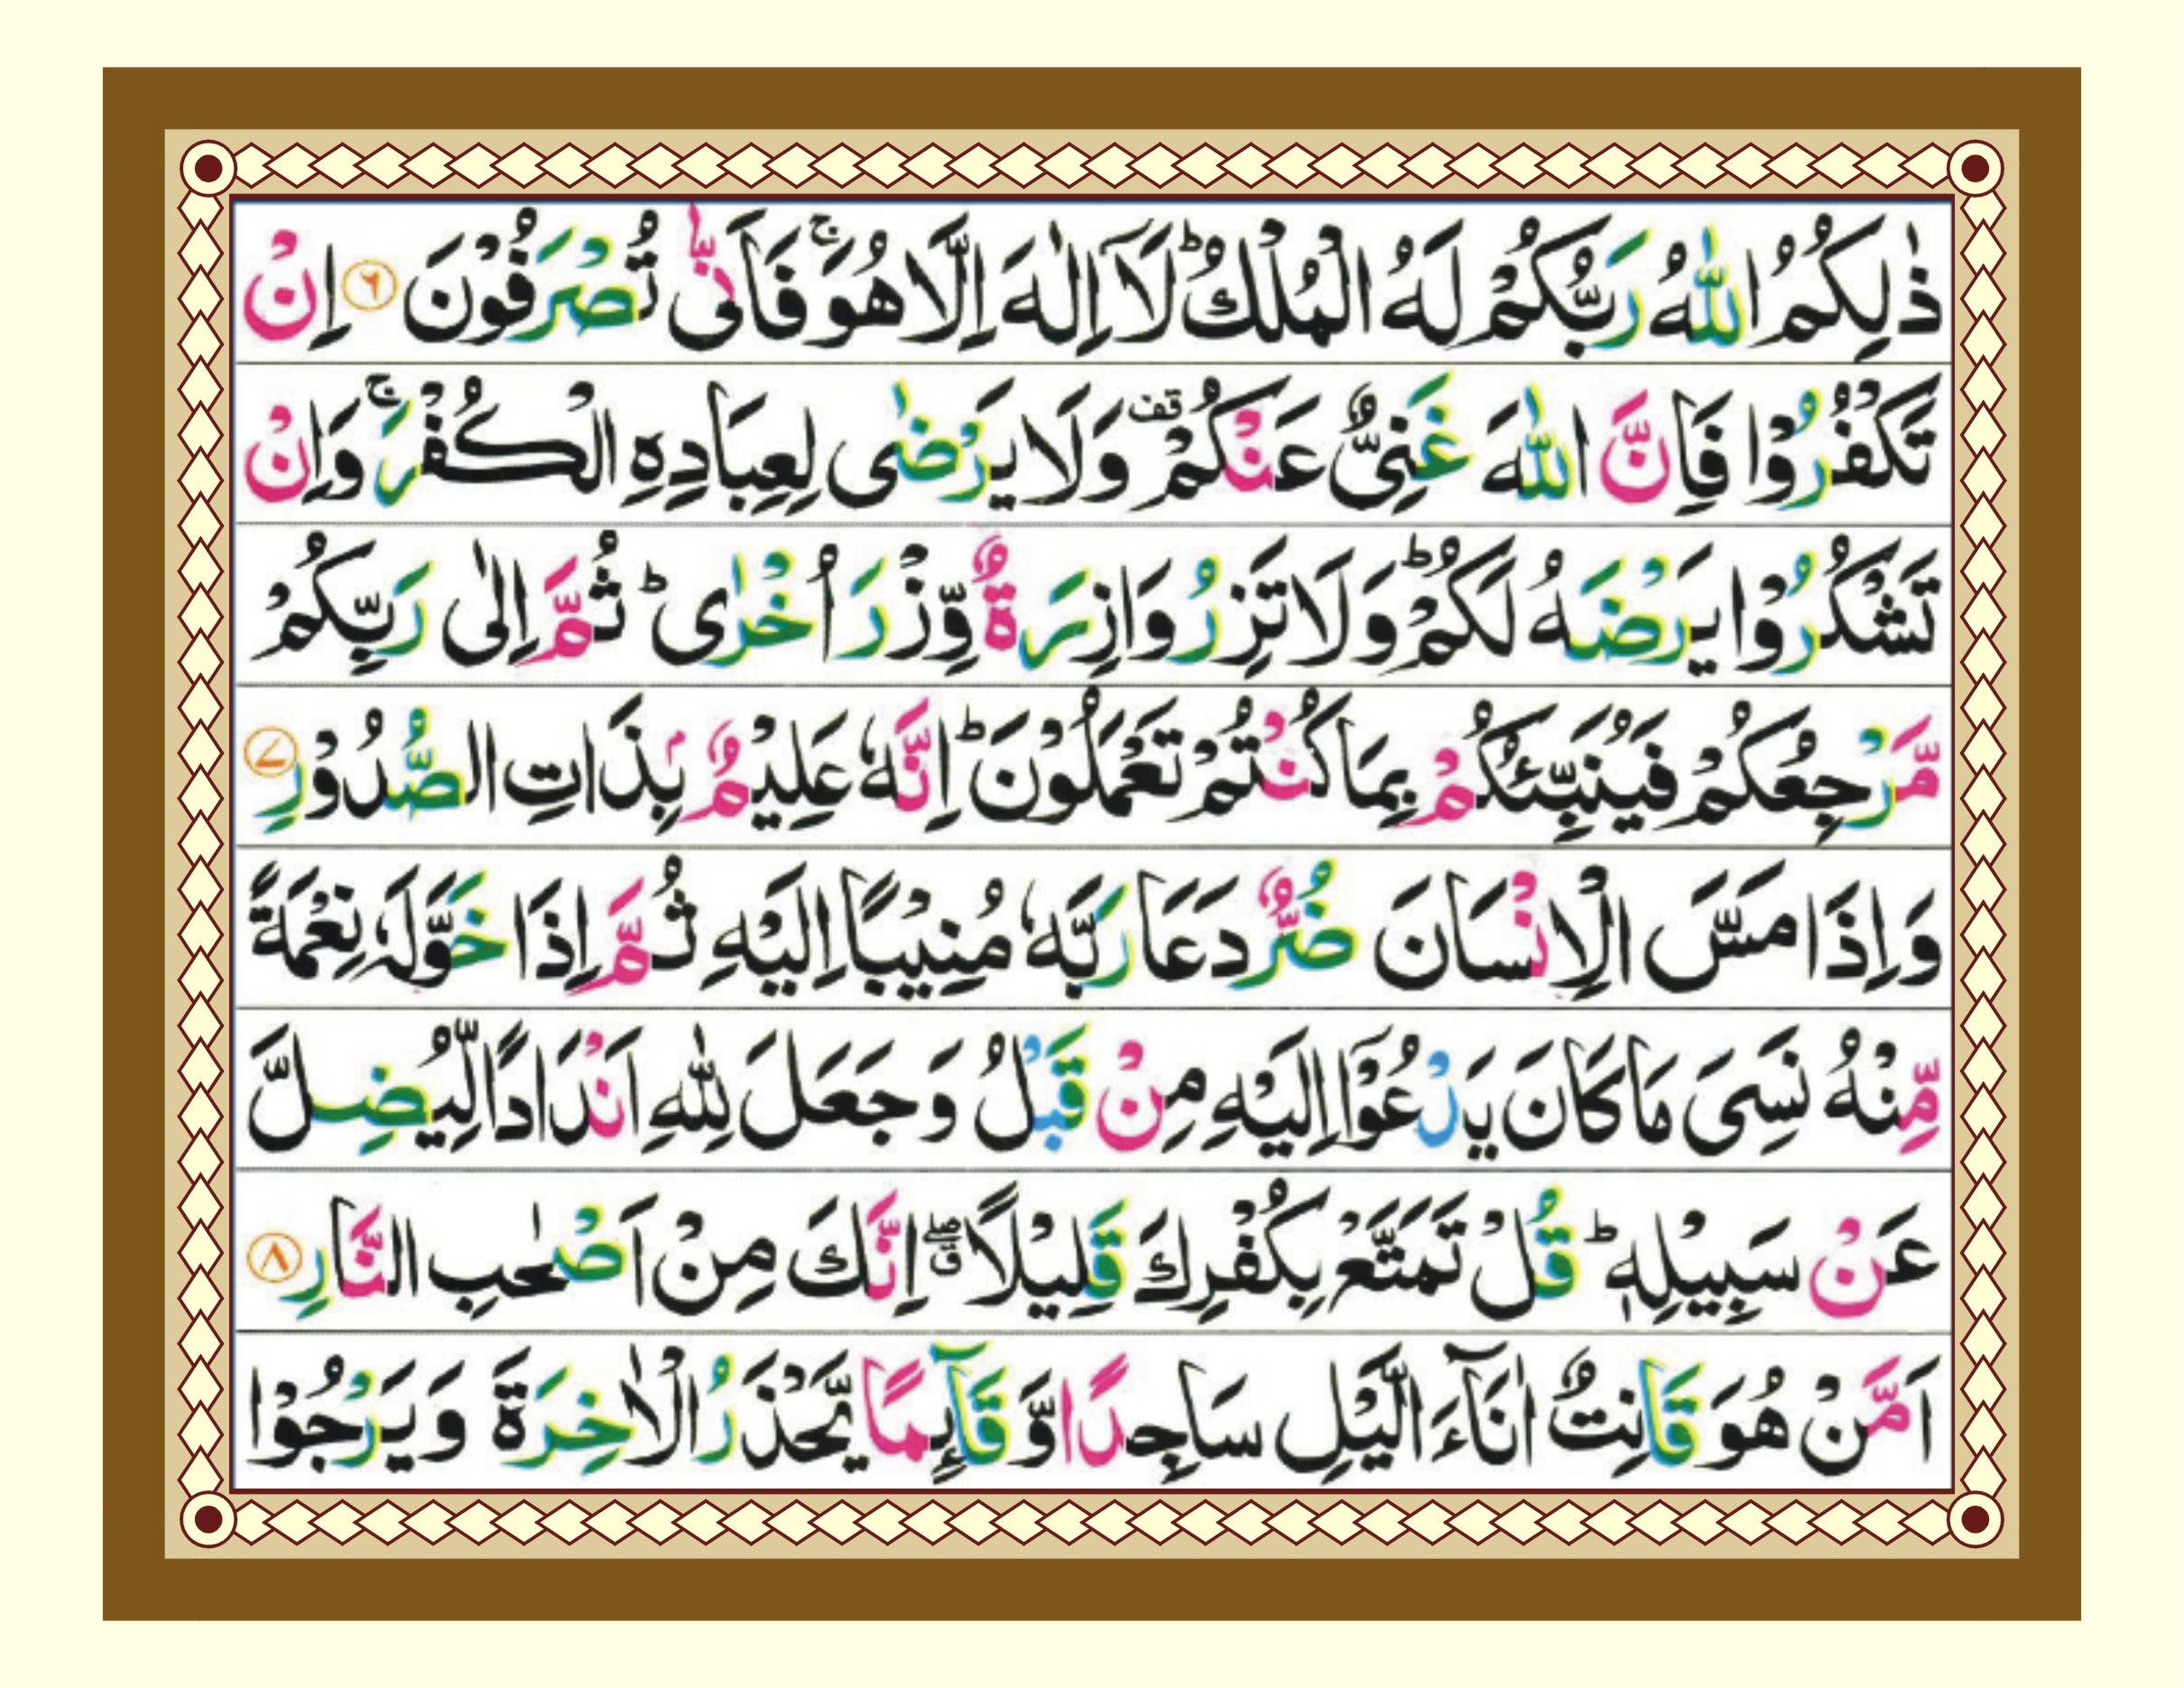 ذٰلِكُمُ اللّٰهُ رَبُّكُمْ لَهُ الْمُلْكُ ؕ لَاۤ اِلٰهَ اِلَّا هُوَ ۚ فَاَنّٰی تُصْرَفُوْنَ ۶ اِنْ
تَكْفُرُوْا فَاِنَّ اللّٰهَ غَنِیٌّ عَنْكُمْ قف وَلَا یَرْضٰی لِعِبَادِهِ الْكُفْرَ ۚ وَاِنْ
تَشْكُرُوْا یَرْضَهُ لَكُمْ ؕ وَلَا تَزِرُ وَازِرَةٌ وِّزْرَ اُخْرٰی ؕ ثُمَّ اِلٰی رَبِّكُمْ
مَّرْجِعُكُمْ فَیُنَبِّئُكُمْ بِمَا كُنْتُمْ تَعْمَلُوْنَ ؕ اِنَّهٗ عَلِیْمٌۢ بِذَاتِ الصُّدُوْرِ ۷
وَاِذَا مَسَّ الْاِنْسَانَ ضُرٌّ دَعَا رَبَّهٗ مُنِیْبًا اِلَیْهِ ثُمَّ اِذَا خَوَّلَهٗ نِعْمَةً
مِّنْهُ نَسِیَ مَا كَانَ یَدْعُوْۤا اِلَیْهِ مِنْ قَبْلُ وَجَعَلَ لِلّٰهِ اَنْدَادًا لِّیُضِلَّ
عَنْ سَبِیْلِهٖ ؕ قُلْ تَمَتَّعْ بِكُفْرِكَ قَلِیْلًا ۖۗ اِنَّكَ مِنْ اَصْحٰبِ النَّارِ ۸
اَمَّنْ هُوَ قَانِتٌ اٰنَآءَ الَّیْلِ سَاجِدًا وَّقَآىِٕمًا یَّحْذَرُ الْاٰخِرَةَ وَیَرْجُوْا